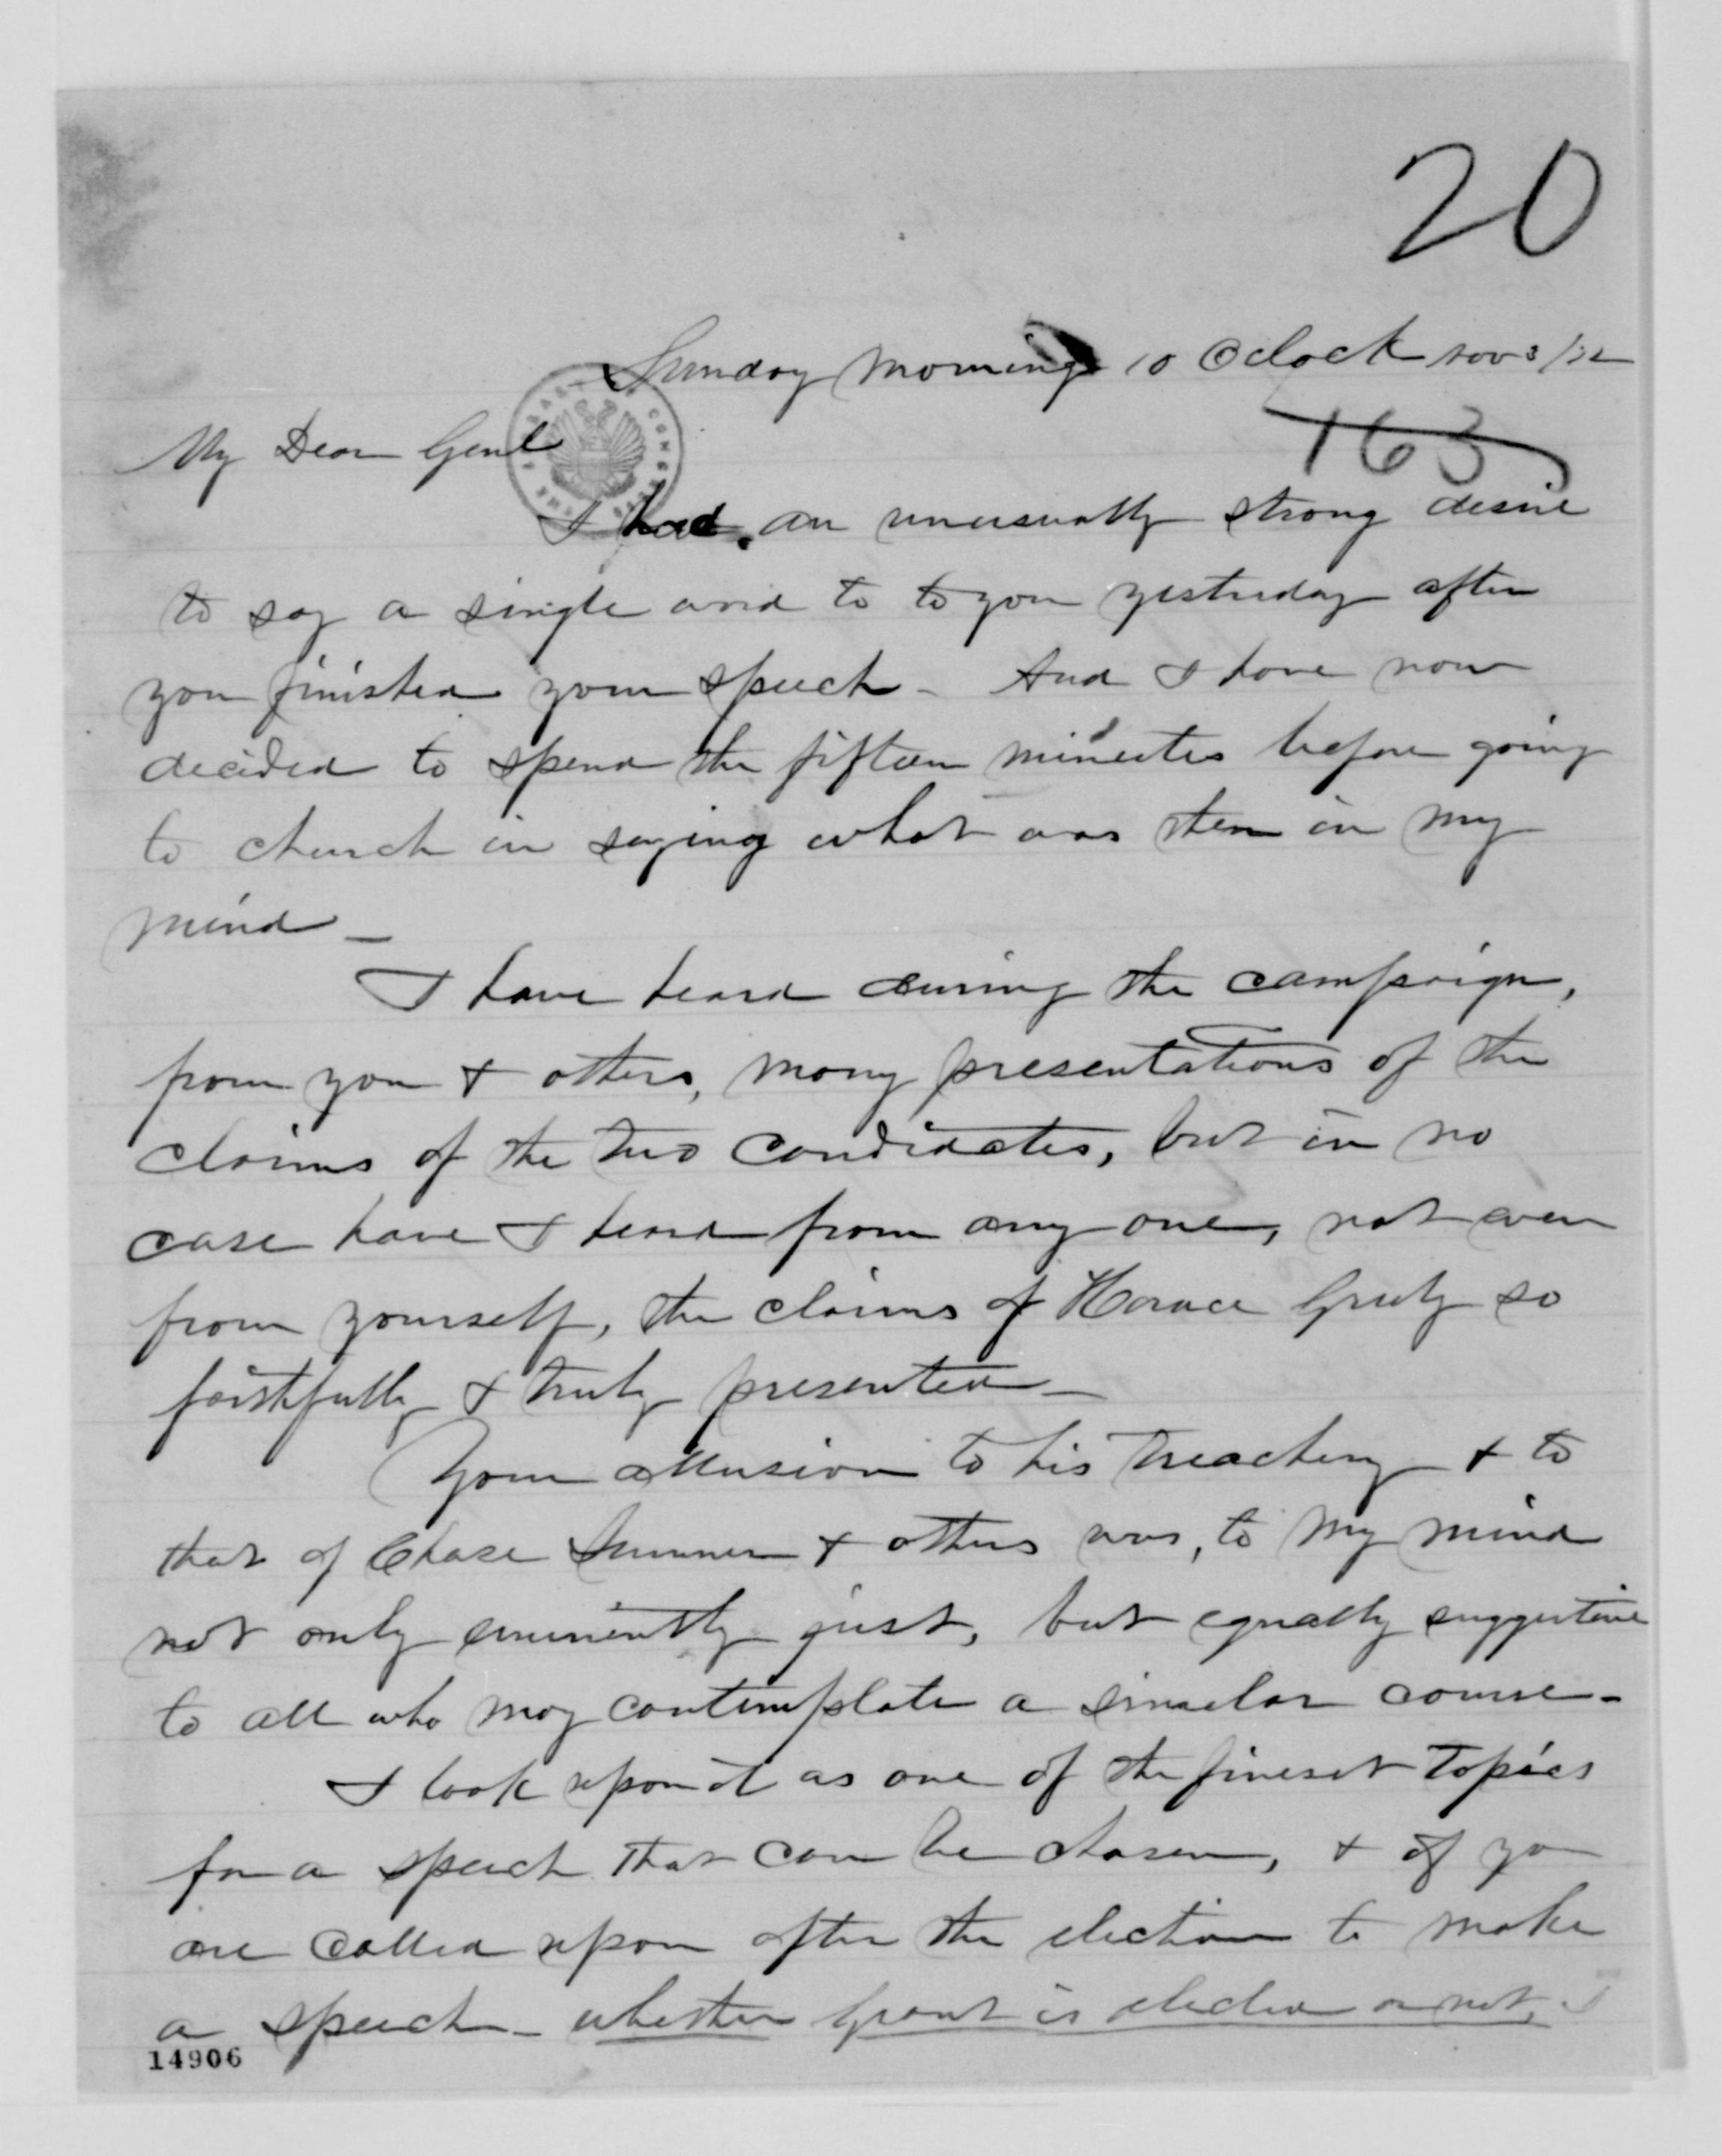 20
Sunday Morning 10 Oclock Nov 3/72
163
My Dear Genl
I had an unusually strong desire
to say a single word to to you yesterday after
you finished your speech - And I have now
decided to spend the fifteen minutes before going
to church in saying what was then in my
mind -
I have heard during the campaign,
from you & others, many presentations of the
claims of the two candidates, but in no
case have I heard from any one, not even
from yourself, the claims of Horace Greely so
faithfully & truly presented -
Your allusion to his treachery & to
that of Chase Sumner & others was, to my mind
not only eminently just, but equally suggestive
to all who may contemplate a similar course -
I look upon it as one of the finest topics
for a speech that can be chosen, & if you
are called upon after the election to make
a speech - whether Grant is elected or not, I
14906